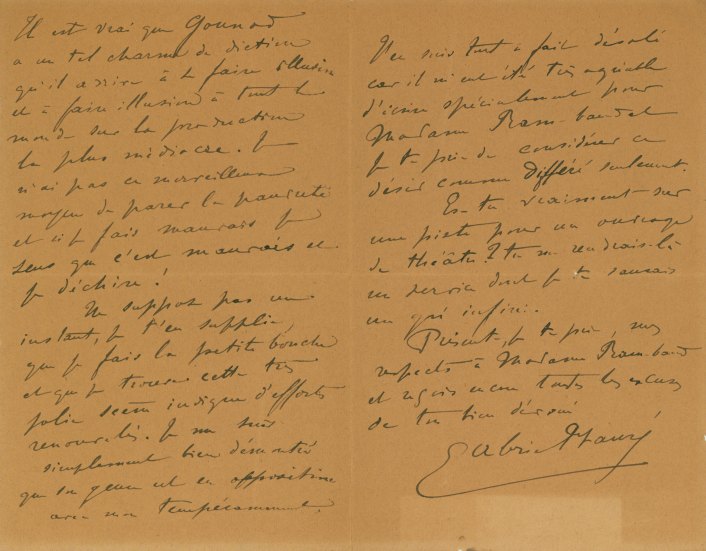 Il est vrai que Gounod
a un tel charme de diction
qu'il arrive à te faire illusion
et à faire illusion à tout le
monde sur la production
la plus médiocre. Je
n'ai pas ce merveilleux
moyen de parer la pauvreté
et si je fais mauvais je
sens que c'est mauvais et
je déchire!
Ne suppose pas un
instant, je t'en supplie,
que je fais la petite bouche
et que je trouve cette très
jolie scène indigne d'efforts
renouvelés. Je me suis
simplement bien démontré
que son genre est en opposition
avec mon tempérament.
J'en suis tout à fait désolé
car il m'eut été très agréable
d'écrire spécialement pour
Madame Rambaud et
je te prie de considérer ce
désir comme différé seulement.
Es-tu vraiment sur
une piste pour un ouvrage
de théâtre? tu me rendrais là
un service dont je te saurais
un gré infini.
Présente, je te prie, mes
respects à Madame Rambaud
et reçois encore toutes les excuses
de ton bien dévoué
Gabriel Fauré